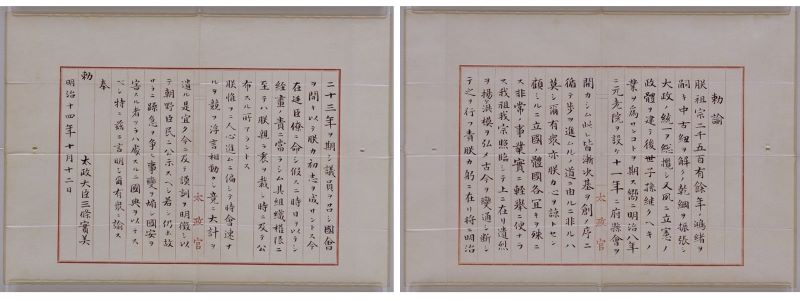 勅諭
朕祖宗二千五百有餘年ノ鴻緒ヲ
嗣キ中古紐ヲ解クノ乾綱ヲ振張シ
大政ノ統一ヲ總攬シ又夙ニ立憲ノ
政體ヲ建テ後世子孫繼クヘキノ
業ヲ爲サンコトヲ期ス嚮ニ明治八年
ニ元老院ヲ設ケ十一年ニ府縣會ヲ
太政官
開カシム此レ皆漸次基ヲ創メ序ニ
循テ歩ヲ進ムルノ道ニ由ルニ非ルハ
莫シ爾有衆亦朕カ心ヲ諒トセン
顧ミルニ立國ノ體國各宜キヲ殊ニ
ス非常ノ事業實ニ輕擧ニ便ナラ
ス我祖我宗照臨シテ上ニ在リ遺烈
ヲ揚ケ洪模ヲ弘メ古今ヲ變通シ斷シ
テ之ヲ行フ責朕カ躬ニ在リ將ニ明治
二十三年ヲ期シ議員ヲ召シ國會
ヲ開キ以テ朕カ初志ヲ成サントス今
在廷臣僚ニ命シ假スニ時日ヲ以テシ
經畫ノ責ニ當ラシム其組織權限ニ
至テハ朕親ラ衷ヲ裁シ時ニ及テ公
布スル所アラントス
朕惟フニ人心進ムニ偏シテ時會速ナ
ルヲ競フ浮言相動カシ竟ニ大計ヲ
太政官
遺ル是宜ク今ニ及テ謨訓ヲ明徴シ以
テ朝野臣民ニ公示スヘシ若シ仍ホ故
サラニ躁急ヲ爭ヒ事變ヲ煽シ國安ヲ
害スル者アラハ處スルニ國典ヲ以テス
ヘシ特ニ茲ニ言明シ爾有衆ニ諭ス
奉
勅 太政大臣三條實美
明治十四年十月十二日